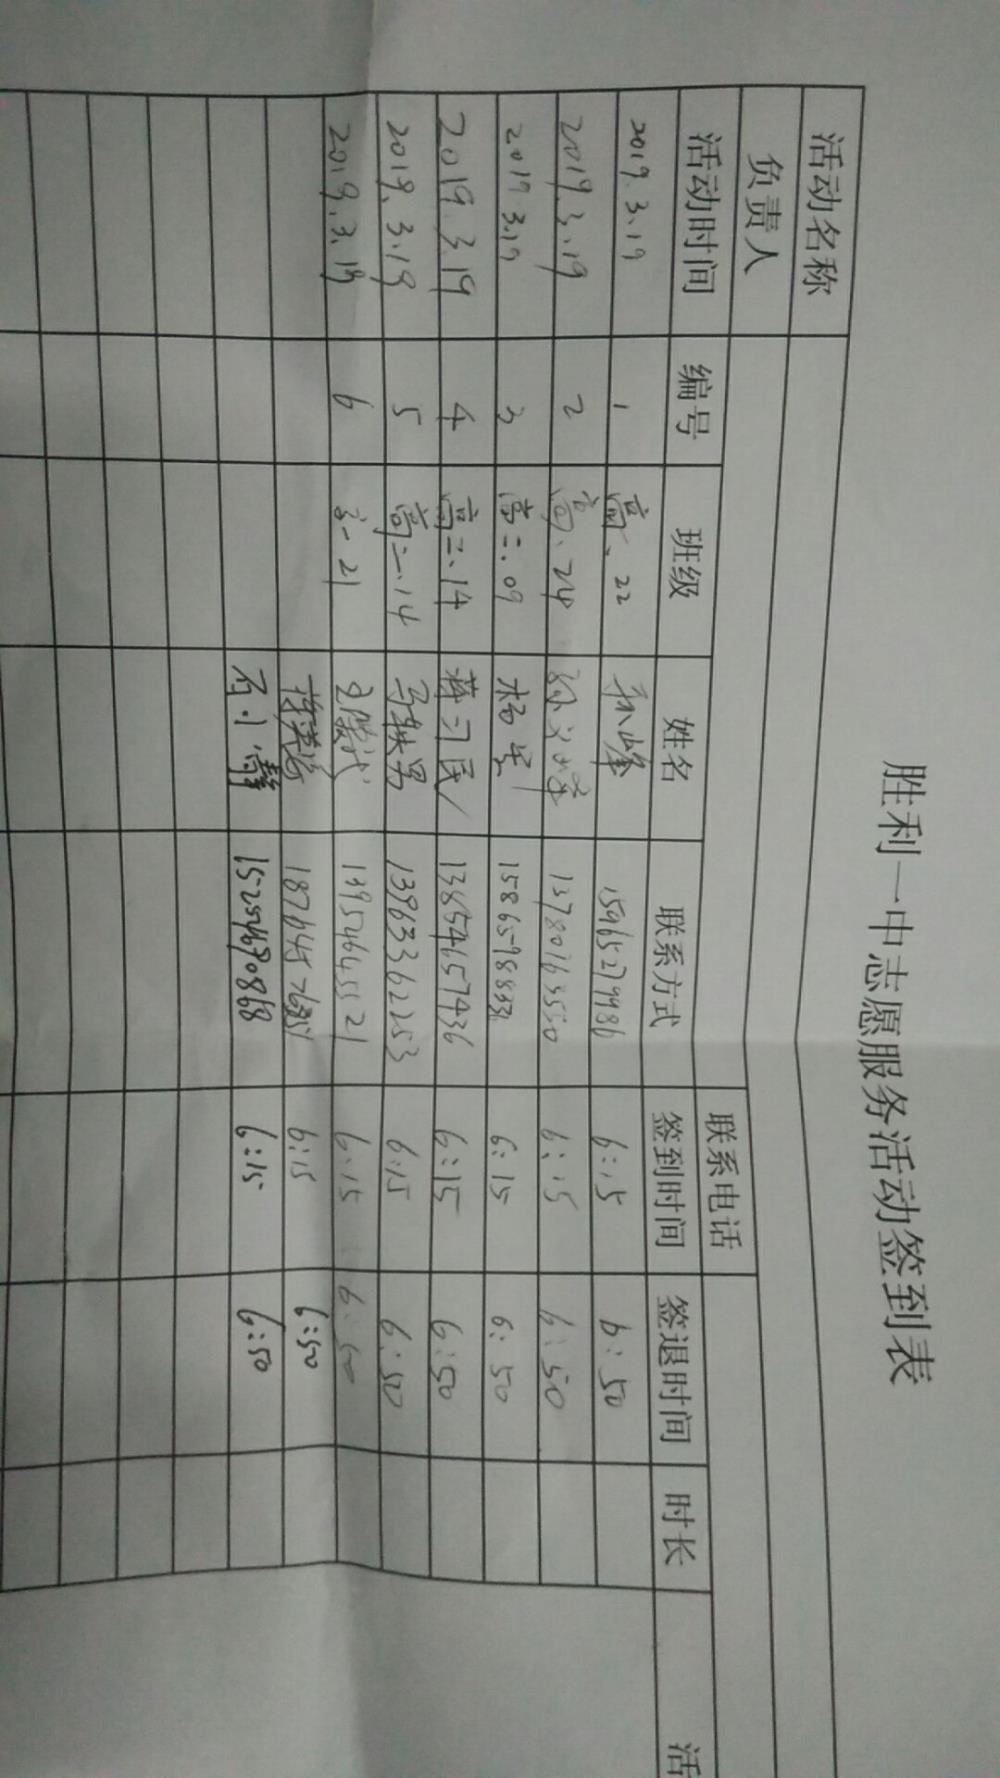 胜利一中志愿服务活动签到表
活动名称
负责人 联系电话
活动时间 编号 班级 姓名 联系方式 签到时间 签退时间 时长 活
2019.3.19 1 高一、22 孙峰 15965279986 6:15 6:50
2019.3.19 2 高一、24 13780763550 6:15 6:50
2019 3.19 3 高二.09 杨 15865988331 6:15 6:50
2019.3.19 4 高二.14 蒋习民 13854657436 6:15 6:50
2019.3.19 5 高二.14 马轶男 13963362253 6:15 6:50
2019.3.19 6 高一21 13954645521 6:15 6:50
6:15 6:50
石小 6:15 6:50